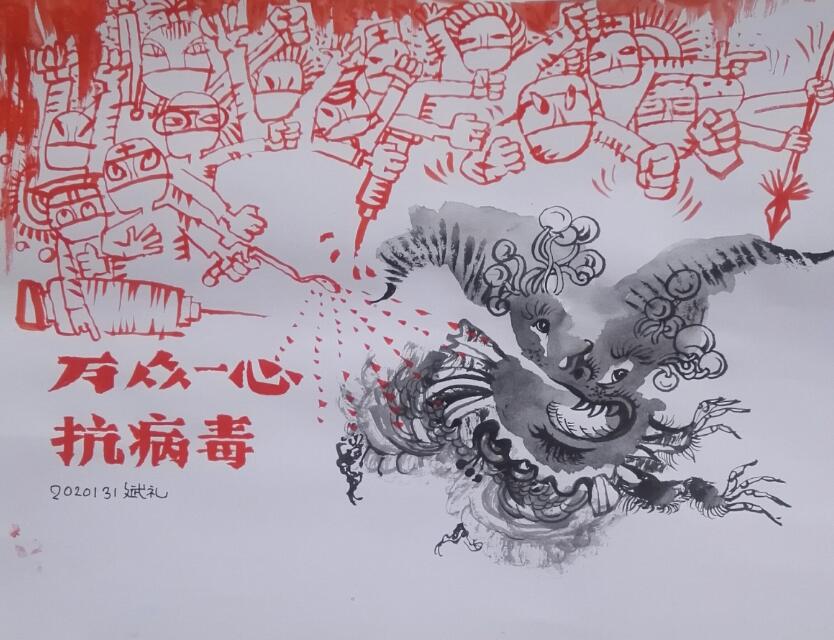 万众一心
抗病毒
20200131 斌礼